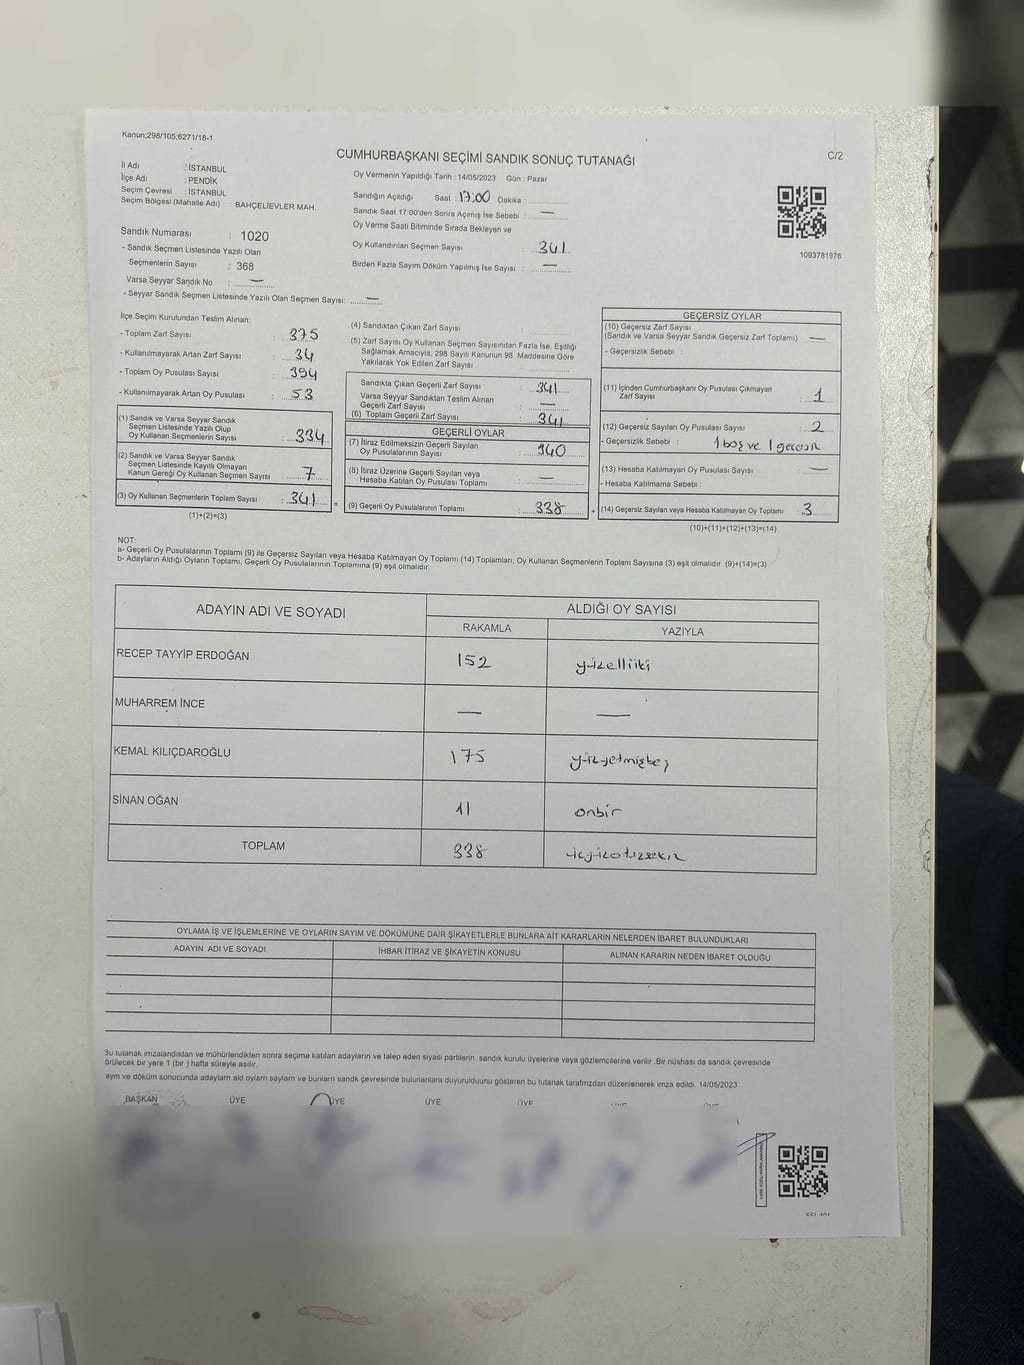 Kanun;298/105;6271/18-1
CUMHURBAŞKANI SEÇİMİ SANDIK SONUÇ TUTANAĞI
C/2
İl Adı : İSTANBUL
İlçe Adı : PENDİK
Seçim Çevresi : İSTANBUL
Seçim Bölgesi (Mahalle Adı) : BAHÇELİEVLER MAH.
Sandık Numarası : 1020
- Sandık Seçmen Listesinde Yazılı Olan
Seçmenlerin Sayısı : 368
Varsa Seyyar Sandık No : —
- Seyyar Sandık Seçmen Listesinde Yazılı Olan Seçmen Sayısı: —
Oy Vermenin Yapıldığı Tarih : 14/05/2023 Gün : Pazar
Sandığın Açıldığı Saat : 17:00 Dakika :
Sandık Saat 17:00'den Sonra Açımış İse Sebebi : —
Oy Verme Saati Bitiminde Sırada Bekleyen ve
Oy Kullandırılan Seçmen Sayısı : 341
Birden Fazla Sayım Döküm Yapılmış İse Sayısı : —
1093781976
İlçe Seçim Kurulundan Teslim Alınan;
- Toplam Zarf Sayısı : 375
- Kullanılmayarak Artan Zarf Sayısı : 34
- Toplam Oy Pusulası Sayısı : 394
- Kullanılmayarak Artan Oy Pusulası : 53
(1) Sandık ve Varsa Seyyar Sandık
Seçmen Listesinde Yazılı Olup
Oy Kullanan Seçmenlerin Sayısı : 334
(2) Sandık ve Varsa Seyyar Sandık
Seçmen Listesinde Kayıtlı Olmayan
Kanun Gereği Oy Kullanan Seçmen Sayısı : 7
(3) Oy Kullanan Seçmenlerin Toplam Sayısı : 341
(1)+(2)=(3)
(4) Sandıktan Çıkan Zarf Sayısı :
(5) Zarf Sayısı Oy Kullanan Seçmen Sayısından Fazla İse, Eşitliği
Sağlamak Amacıyla; 298 Sayılı Kanunun 98. Maddesine Göre
Yakılarak Yok Edilen Zarf Sayısı :
Sandıkta Çıkan Geçerli Zarf Sayısı : 341
Varsa Seyyar Sandıktan Teslim Alınan
Geçerli Zarf Sayısı : —
(6) Toplam Geçerli Zarf Sayısı : 341
GEÇERLİ OYLAR
(7) İtiraz Edilmeksizin Geçerli Sayılan
Oy Pusulalarının Sayısı : 340
(8) İtiraz Üzerine Geçerli Sayılan veya
Hesaba Katılan Oy Pusulası Toplamı : —
= (9) Geçerli Oy Pusulalarının Toplamı : 338 +
GEÇERSİZ OYLAR
(10) Geçersiz Zarf Sayısı
(Sandık ve Varsa Seyyar Sandık Geçersiz Zarf Toplamı) : —
- Geçersizlik Sebebi :
(11) İçinden Cumhurbaşkanı Oy Pusulası Çıkmayan
Zarf Sayısı : 1
(12) Geçersiz Sayılan Oy Pusulası Sayısı : 2
- Geçersizlik Sebebi : 1 boş ve 1 geçersiz
(13) Hesaba Katılmayan Oy Pusulası Sayısı : —
- Hesaba Katılmama Sebebi :
(14) Geçersiz Sayılan veya Hesaba Katılmayan Oy Toplamı : 3
(10)+(11)+(12)+(13)=(14)
NOT:
a- Geçerli Oy Pusulalarının Toplamı (9) ile Geçersiz Sayılan veya Hesaba Katılmayan Oy Toplamı (14) Toplamları, Oy Kullanan Seçmenlerin Toplam Sayısına (3) eşit olmalıdır. (9)+(14)=(3)
b- Adayların Aldığı Oyların Toplamı, Geçerli Oy Pusulalarının Toplamına (9) eşit olmalıdır.
ADAYIN ADI VE SOYADI ALDIĞI OY SAYISI
RAKAMLA YAZIYLA
RECEP TAYYİP ERDOĞAN 152 yüzelliiki
MUHARREM İNCE — —
KEMAL KILIÇDAROĞLU 175 yüzyetmişbeş
SİNAN OĞAN 11 onbir
TOPLAM 338 üçyüzotuzsekiz
OYLAMA İŞ VE İŞLEMLERİNE VE OYLARIN SAYIM VE DÖKÜMÜNE DAİR ŞİKAYETLERLE BUNLARA AİT KARARLARIN NELERDEN İBARET BULUNDUKLARI
ADAYIN ADI VE SOYADI İHBAR İTİRAZ VE ŞİKAYETİN KONUSU ALINAN KARARIN NEDEN İBARET OLDUĞU
Bu tutanak imzalandıktan ve mühürlendikten sonra seçime katılan adayların ve talep eden siyasi partilerin sandık kurulu üyelerine veya gözlemcilerine verilir .Bir nüshası da sandık çevresinde
örülecek bir yere 1 (bir ) hafta süreyle asılır.
aym ve döküm sonucunda adayların ald oyların sayların ve bunların sandk çevresinde bulunanlara duyurulduunu gösteren bu tutanak tarafmzdan düzenlenerek imza edildi. 14/05/2023
BAŞKAN ÜYE ÜYE ÜYE ÜYE